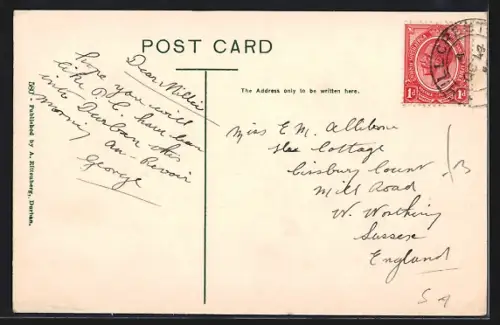 POST CARD
Dear Millie
hope you will
like P.C. have been
into Durban this
morning
au-Revoir
George
5367. Published by A. Rittenberg, Durban.
The Address only to be written here.
Miss E M. Allibone
Cottage
Cissbury Court
Mill Road
W. Worthing
Sussex
England
1d 1d